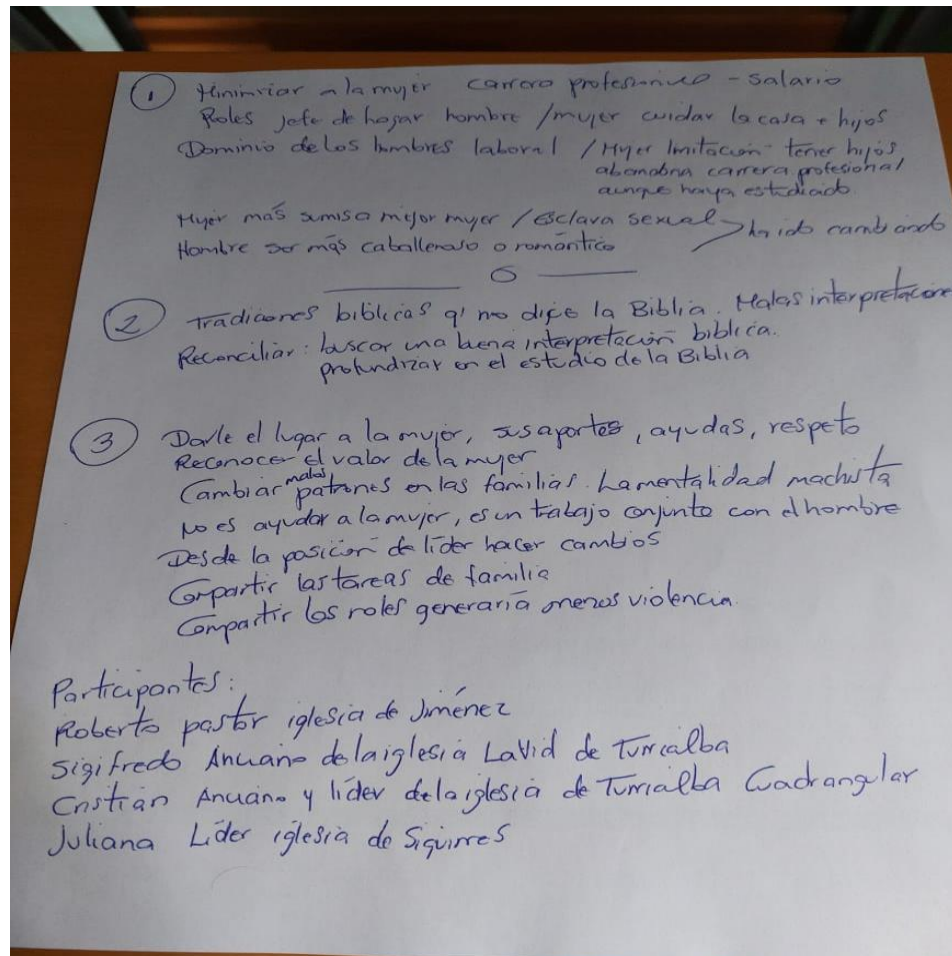 ① Minimiar a la mujer carrera profesional - salario
Roles jefe de hogar hombre / mujer cuidar la casa + hijos
Dominio de los hombres laboral / Mujer limitación tener hijos
abandona carrera profesional
aunque haya estudiado
Mujer más sumisa mejor mujer / esclava sexual > ha ido cambiando
Hombre ser más caballeroso o romántico
② Tradiciones bíblicas q' no dice la Biblia. Malas interpretacione
Reconciliar: buscar una buena interpretación bíblica.
profundizar en el estudio de la Biblia
③ Darle el lugar a la mujer, sus aportes, ayudas, respeto
Reconocer el valor de la mujer
Cambiar malos patrones en las familias. La mentalidad machista
No es ayudar a la mujer, es un trabajo conjunto con el hombre
Desde la posición de líder hacer cambios
Compartir las tareas de familia
Compartir los roles generaría menos violencia.
Participantes:
Roberto pastor iglesia de Jiménez
Sigifredo Anciano de la iglesia La Vid de Turrialba
Cristian Anciano y líder de la iglesia de Turrialba Cuadrangular
Juliana Líder iglesia de Siquirres